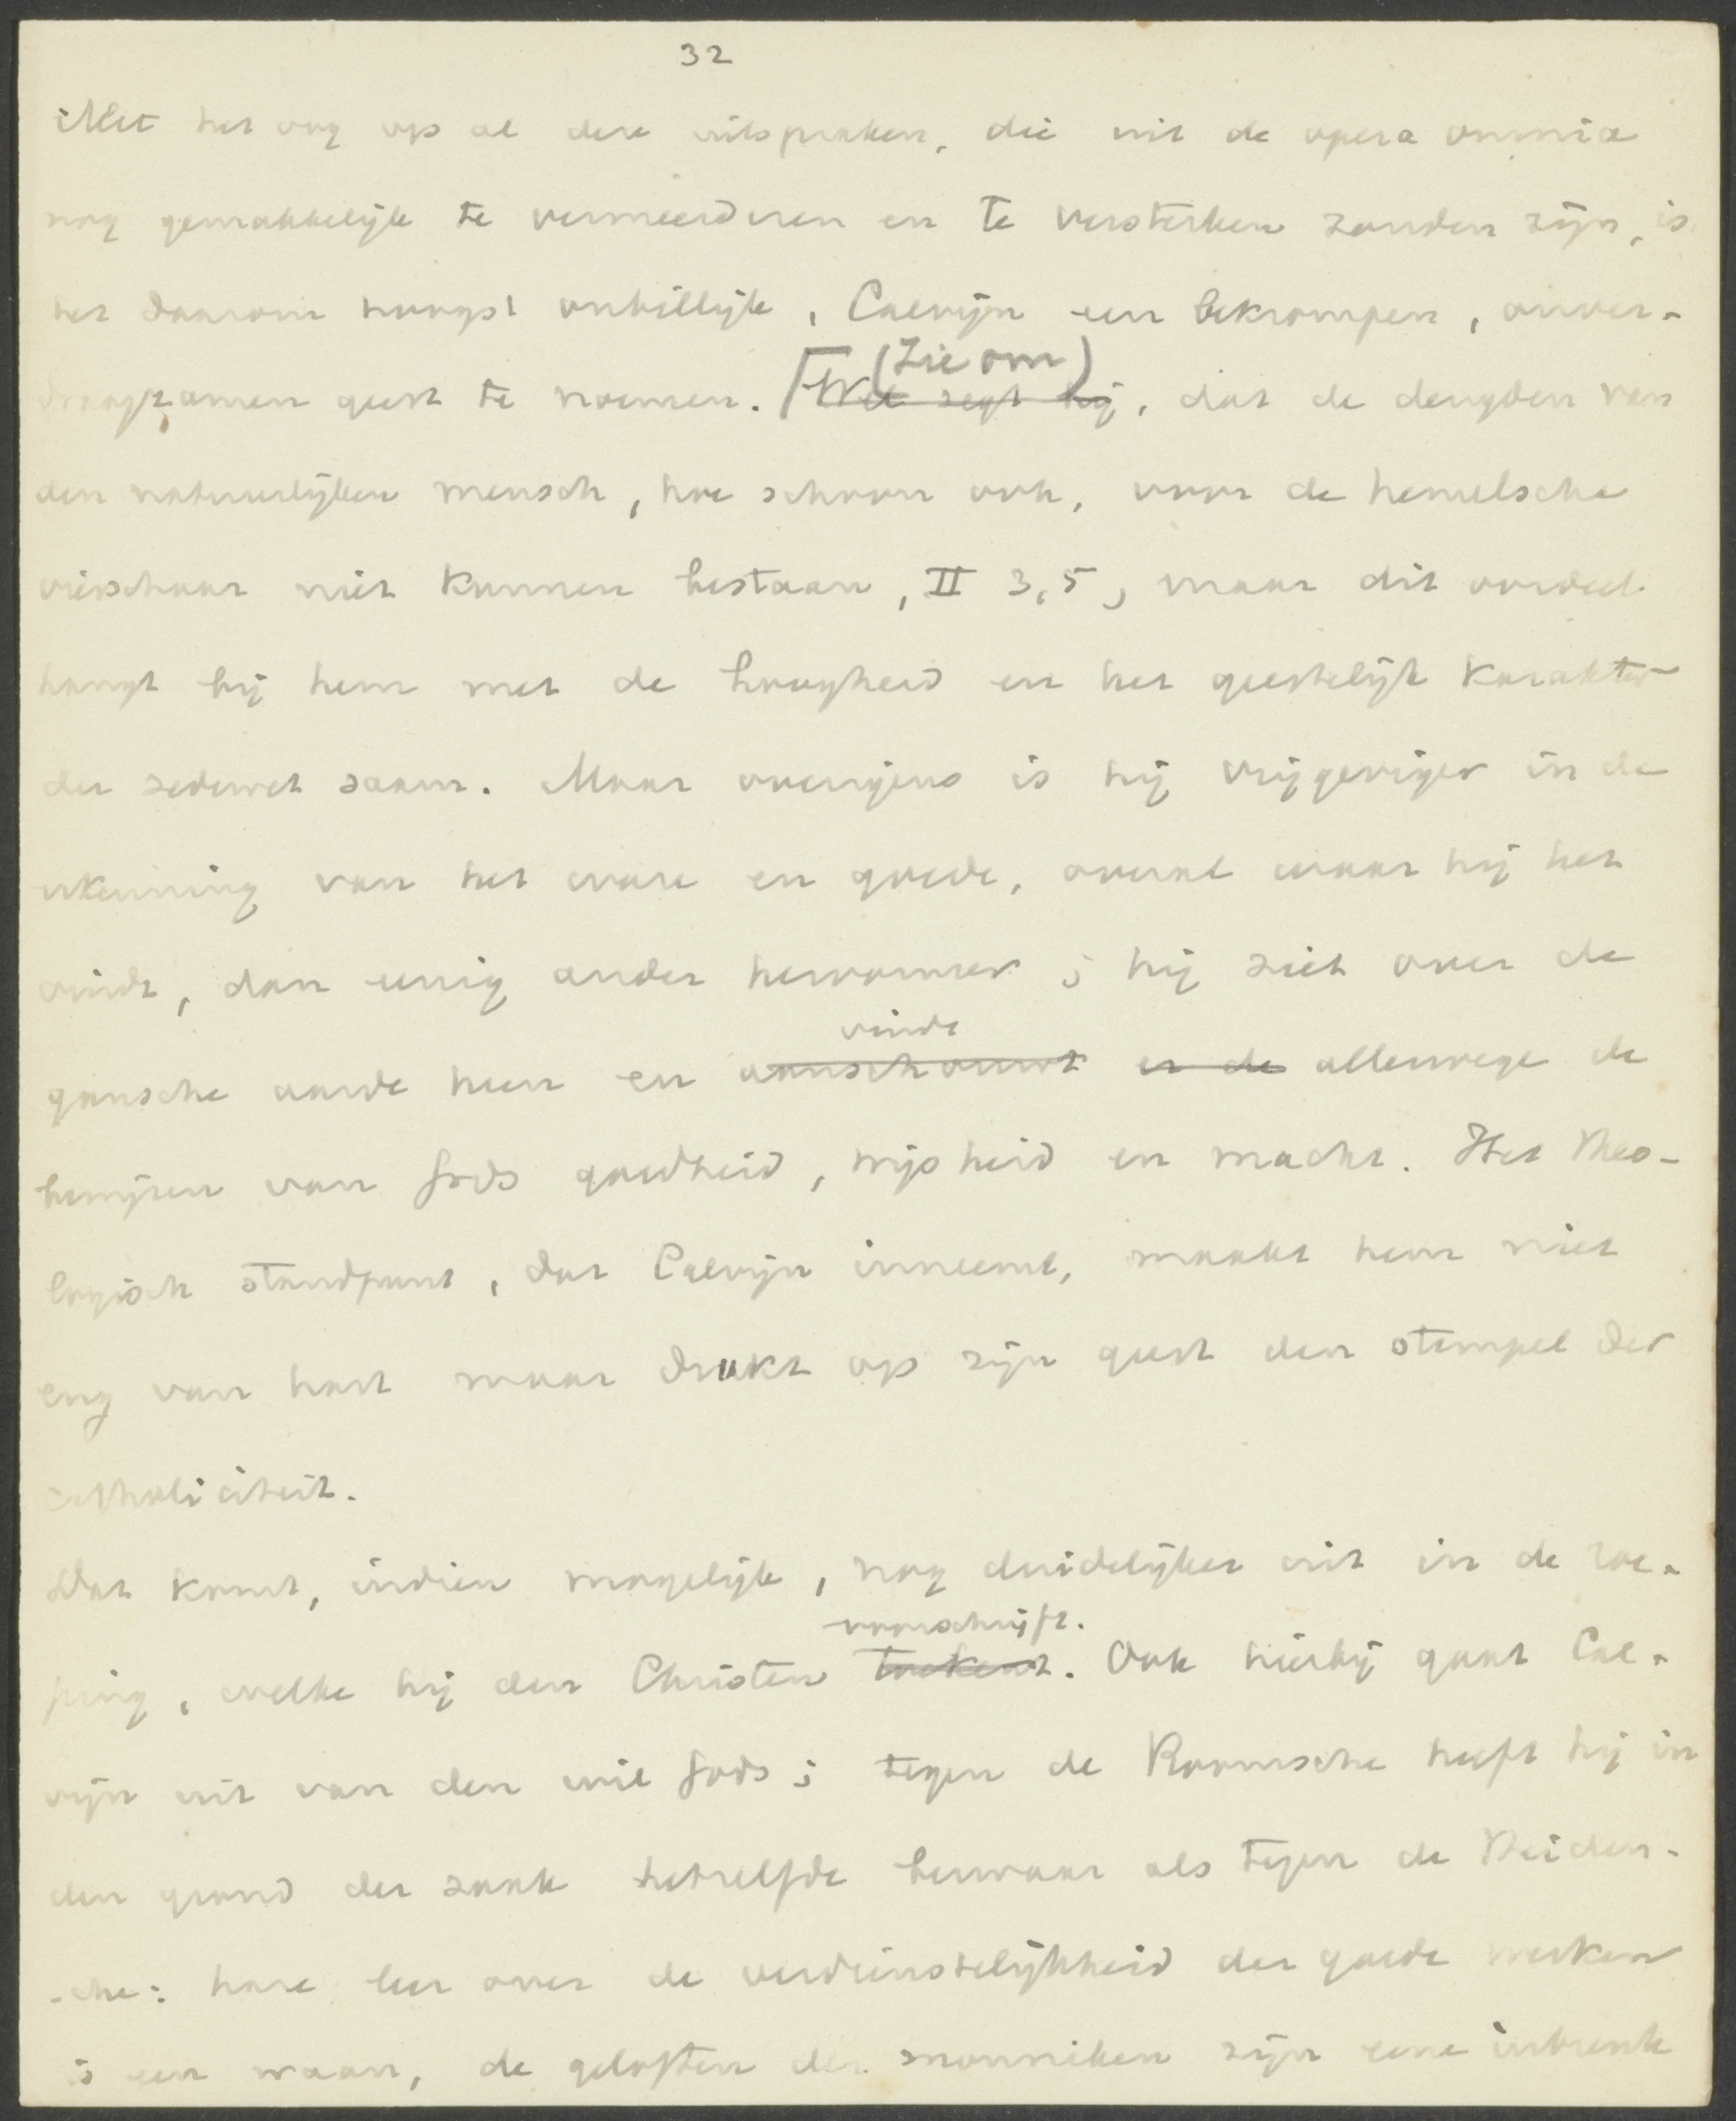 32
Met het oog op al deze uitspraken, die uit de opera omnia
nog gemakkelijk te vermeerderen en te versterken zouden zijn, is
het daarom hoogst onbillijk, Calvijn een bekrompen, onver-
(Zie om)
draagzamen geest te noemen. ⌈Wel zegt hij, dat de deugden van
den natuurlijken mensch, hoe schoon ook, voor de hemelsche
vierschaar niet kunnen bestaan, II 3,5, maar dit oordeel
hangt bij hem met de hoogheid en het geestelijk karakter
der zedewet saam. Maar overigens is hij vrijgeviger in de
erkenning van het ware en goede, overal waar hij het
vindt, dan eenig ander hervormer; hij ziet over de
vindt
gansche aarde heen en aanschouwt er de allerwege de
bewijzen van Gods goedheid, wijsheid en macht. Het theo-
logisch standpunt, dat Calvijn inneemt, maakt hem niet
eng van hart maar drukt op zijn geest den stempel der
catholiciteit.
Dat komt, indien mogelijk, nog duidelijker uit in de roe-
voorschrijft.
ping, welke hij den Christen toekent. Ook hierbij gaat Cal-
vijn uit van den wil Gods; tegen de Roomsche heeft hij in
den grond der zaak hetzelfde bezwaar als tegen de Heiden-
-sche: hare leer over de verdienstelijkheid der goede werken
is een waan, de geloften der monniken zijn eene inbreuk